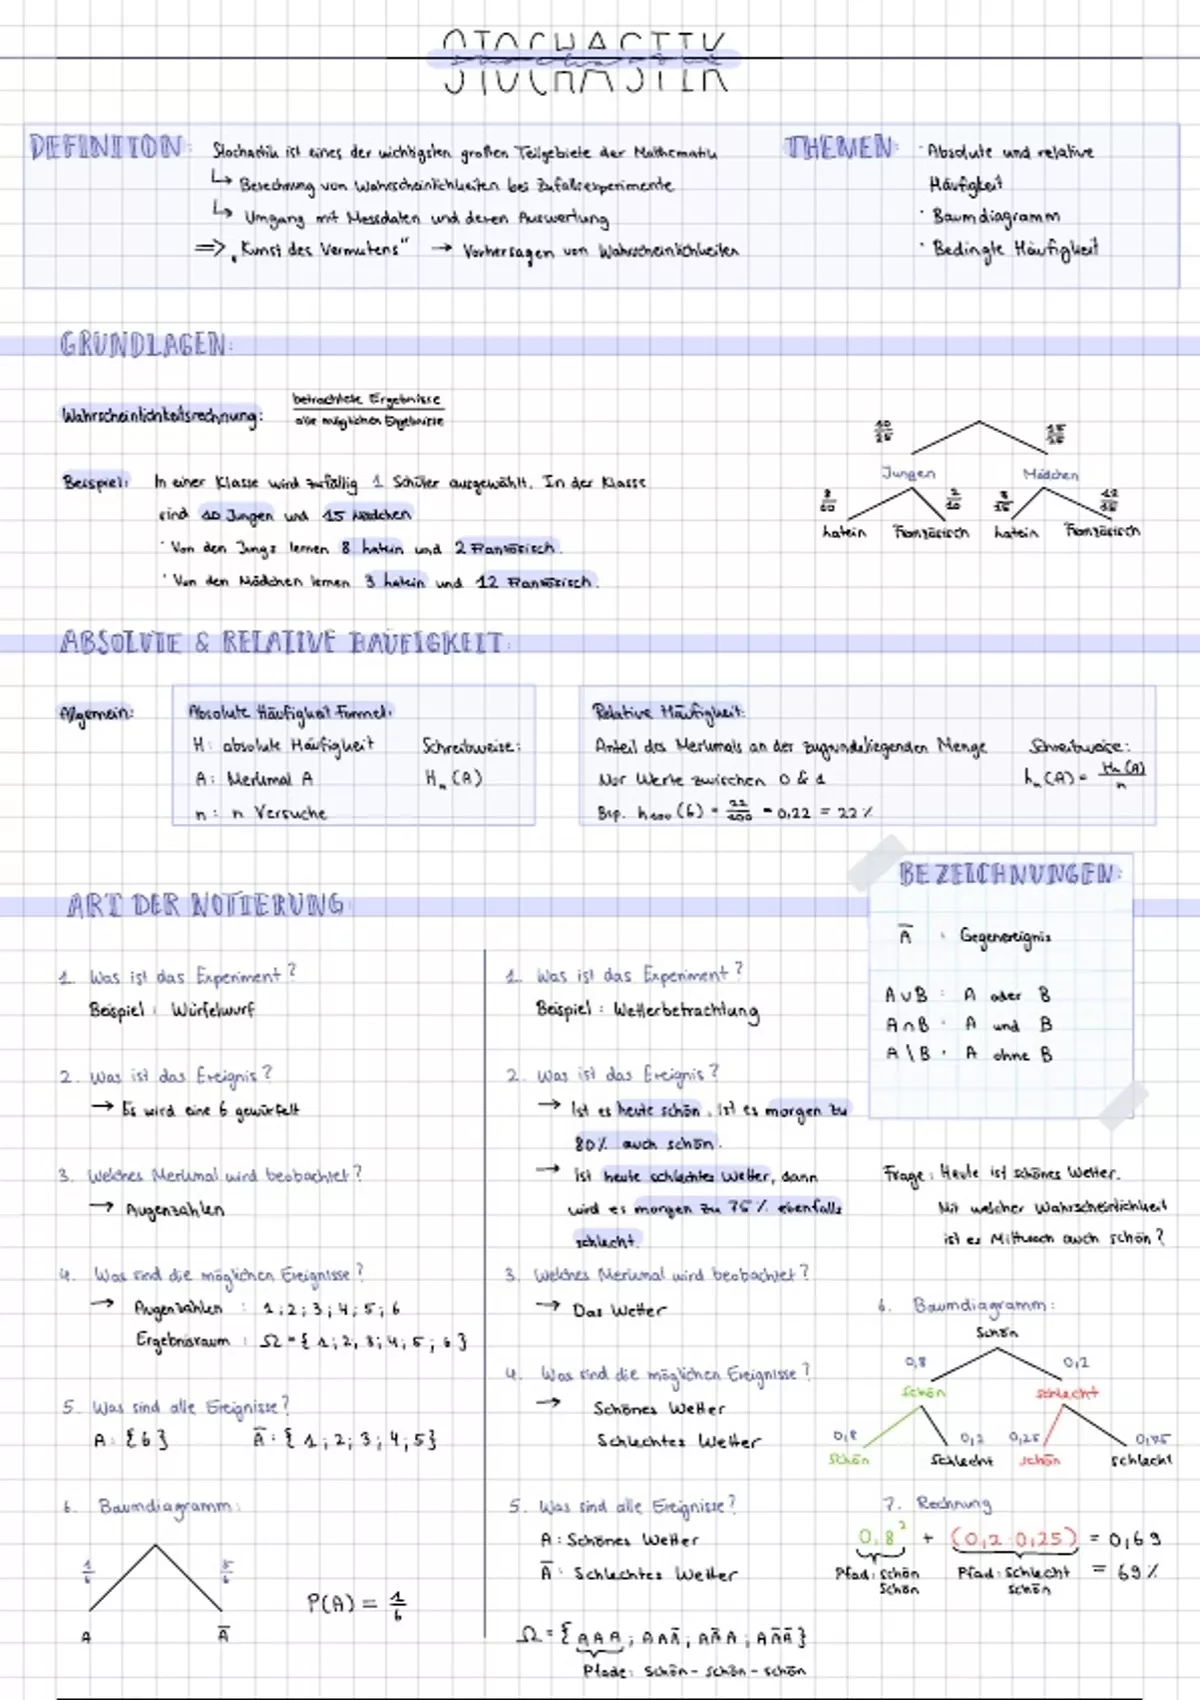 STOCHASTIK
DEFINITION:
Stochastik ist eines der wichtigsten großen Teilgebiete der Mathematik
↳ Berechnung von Wahrscheinlichkeiten bei Zufallsexperimente
↳ Umgang mit Messdaten und deren Auswertung
⇒ „Kunst des Vermutens" → Vorhersagen von Wahrscheinlichkeiten
THEMEN:
· Absolute und relative
Häufigkeit
· Baumdiagramm
· Bedingte Häufigkeit
GRUNDLAGEN:
Wahrscheinlichkeitsrechnung:
betrachtete Ergebnisse
alle möglichen Ergebnisse
Beispiel: In einer Klasse wird zufällig 1 Schüler ausgewählt. In der Klasse
sind 10 Jungen und 15 Mädchen
· Von den Jungs lernen 8 Latein und 2 Französisch.
· Von den Mädchen lernen 3 Latein und 12 Französisch.
10/25 15/25
Jungen Mädchen
8/10 2/10 3/15 12/15
Latein Französisch Latein Französisch
ABSOLUTE & RELATIVE HÄUFIGKEIT:
Allgemein:
Absolute Häufigkeit Formel:
H: absolute Häufigkeit Schreibweise:
A: Merkmal A Hₙ(A)
n: n Versuche
Relative Häufigkeit:
Anteil des Merkmals an der zugrundeliegenden Menge Schreibweise:
Nur Werte zwischen 0 & 1 hₙ(A) = Hₙ(A)/n
Bsp. h₁₀₀(6) = 22/100 = 0,22 = 22%
ART DER NOTIERUNG:
1. Was ist das Experiment?
Beispiel: Würfelwurf
2. Was ist das Ereignis?
→ Es wird eine 6 gewürfelt
3. Welches Merkmal wird beobachtet?
→ Augenzahlen
4. Was sind die möglichen Ereignisse?
→ Augenzahlen : 1; 2; 3; 4; 5; 6
Ergebnisraum : Ω = { 1; 2; 3; 4; 5; 6 }
5. Was sind alle Ereignisse?
A: {6} A̅: { 1; 2; 3; 4; 5}
6. Baumdiagramm:
1/6 5/6
P(A) = 1/6
A A̅
1. Was ist das Experiment?
Beispiel: Wetterbetrachtung
2. Was ist das Ereignis?
→ Ist es heute schön, ist es morgen zu
80% auch schön.
→ Ist heute schlechtes Wetter, dann
wird es morgen zu 75% ebenfalls
schlecht.
3. Welches Merkmal wird beobachtet?
→ Das Wetter
4. Was sind die möglichen Ereignisse?
→ Schönes Wetter
Schlechtes Wetter
5. Was sind alle Ereignisse?
A: Schönes Wetter
A̅: Schlechtes Wetter
Ω = { AAA; AAA̅; AA̅A; AA̅A̅ }
Pfade: schön - schön - schön
BEZEICHNUNGEN:
A̅ : Gegenereignis
A∪B : A oder B
A∩B : A und B
A\B : A ohne B
Frage: Heute ist schönes Wetter.
Mit welcher Wahrscheinlichkeit
ist es Mittwoch auch schön?
6. Baumdiagramm:
Schön
0,8 0,2
schön schlecht
0,8 0,2 0,25 0,75
schön schlecht schön schlecht
7. Rechnung
0,8² + (0,2·0,25) = 0,69
Pfad: schön Pfad: schlecht = 69%
schön schön